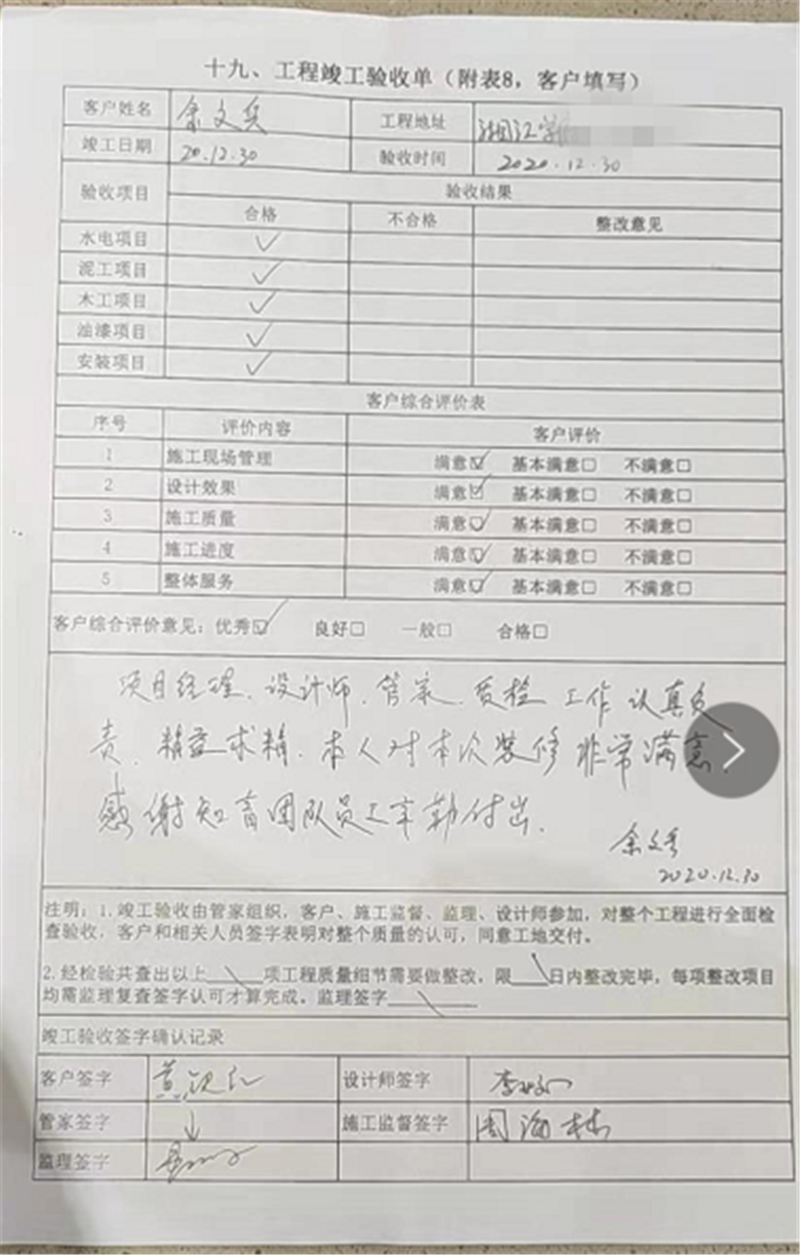 十九、工程竣工验收单（附表8，客户填写）
客户姓名 余文兵 工程地址 湘江学
竣工日期 20.12.30 验收时间 2020.12.30
验收项目 验收结果
合格 不合格 整改意见
水电项目 ✓
泥工项目 ✓
木工项目 ✓
油漆项目 ✓
安装项目 ✓
客户综合评价表
序号 评价内容 客户评价
1 施工现场管理 满意☑ 基本满意□ 不满意□
2 设计效果 满意☑ 基本满意□ 不满意□
3 施工质量 满意☑ 基本满意□ 不满意□
4 施工进度 满意☑ 基本满意□ 不满意□
5 整体服务 满意☑ 基本满意□ 不满意□
客户综合评价意见：优秀☑ 良好□ 一般□ 合格□
项目经理、设计师、管家、质检 工作 认真负
责、精益求精、本人对本次装修 非常满意，
感谢知音团队员工辛勤付出。
余文兵
2020.12.30
注明：1.竣工验收由管家组织，客户、施工监督、监理、设计师参加，对整个工程进行全面检
查验收，客户和相关人员签字表明对整个质量的认可，同意工地交付。
2.经检验共查出以上____项工程质量细节需要做整改，限____日内整改完毕，每项整改项目
均需监理复查签字认可才算完成。监理签字________
竣工验收签字确认记录
客户签字 设计师签字
管家签字 施工监督签字 周海林
监理签字